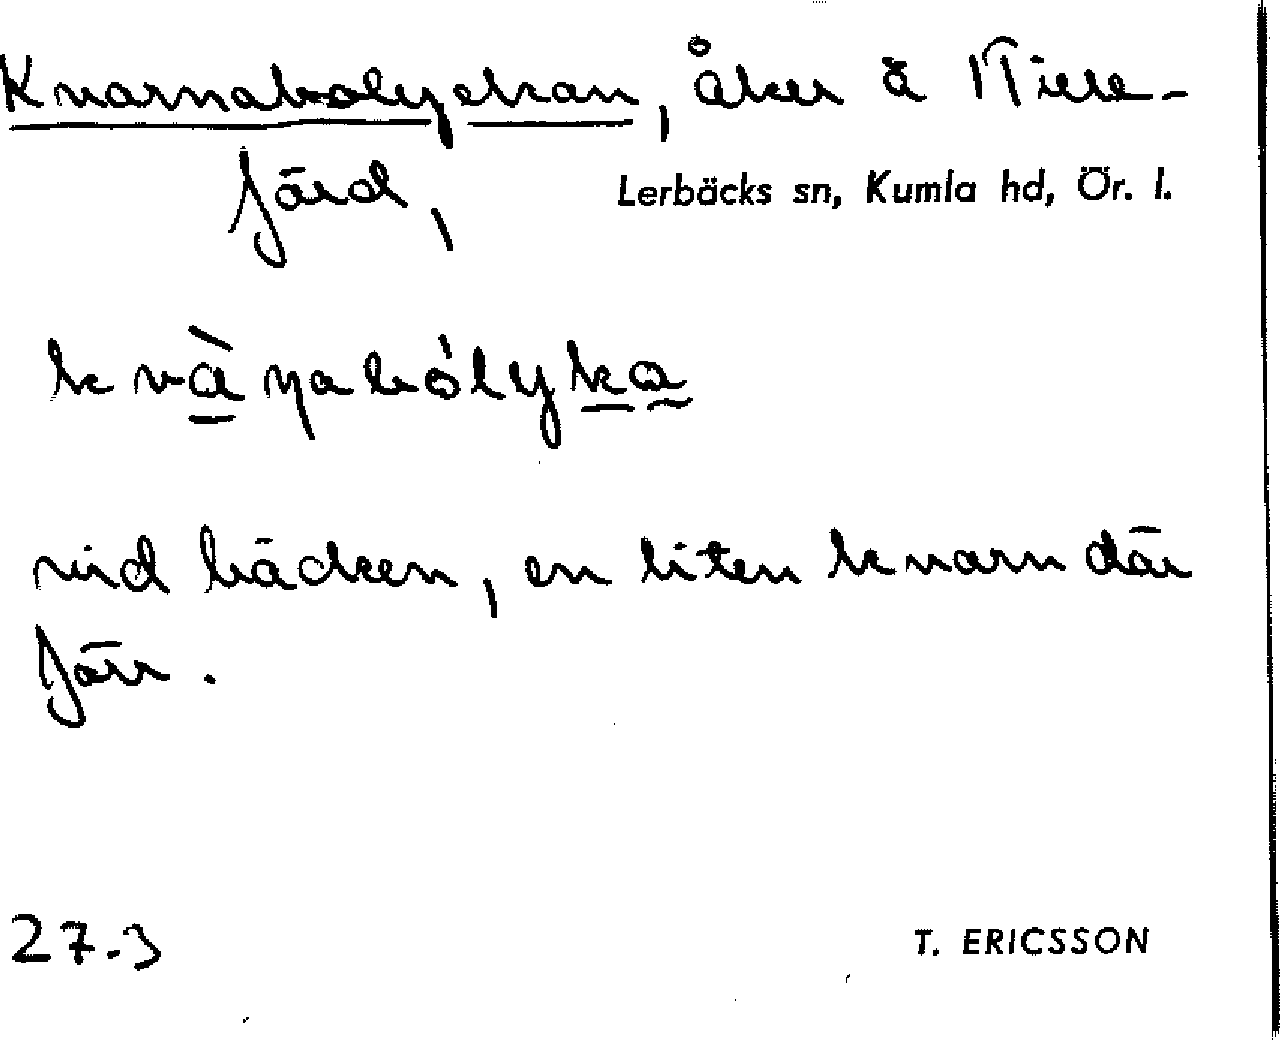 Kvarnabolyckan, åker å
Lerbäcks sn, Kumla hd, Ör. l.
kvàɳabólyka
vid bäcken, en liten kvarn där
förr.
27.3
T. ERICSSON